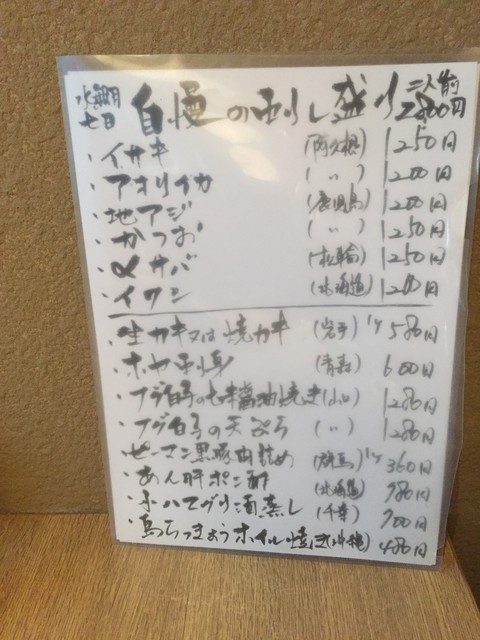 水無月 自慢の刺し盛り 二人前
七日 2800円
・イサキ (阿久根) 1250円
・アオリイカ (〃) 1200円
・地アジ (鹿児島) 1200円
・かつお (〃) 1250円
・〆サバ (松輪) 1250円
・イワシ (北海道) 1200円
・生カキ又は焼カキ (岩手) 1ヶ 580円
・ホヤ刺身 (青森) 600円
・フグ白子の七味醤油焼き (山口) 1280円
・フグ白子の天ぷら (〃) 1280円
ピーマン黒豚肉詰め (群馬) 1ヶ 360円
・あん肝ポン酢 (北海道) 980円
・小ハマグリ酒蒸し (千葉) 700円
・島らっきょうホイル焼き (沖縄) 480円